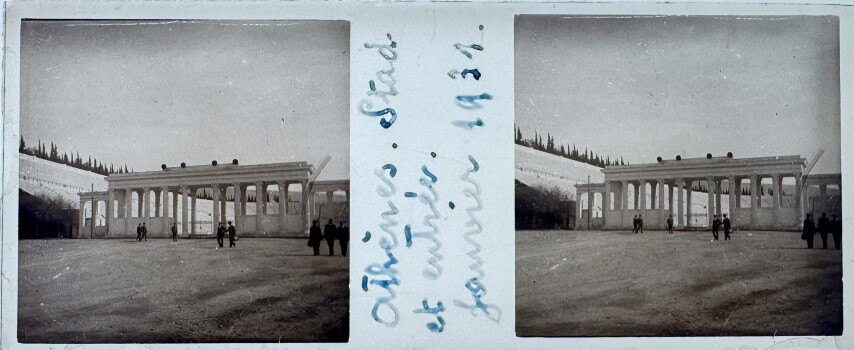 Athènes. Stad.
et entrée.
Janvier 1931.